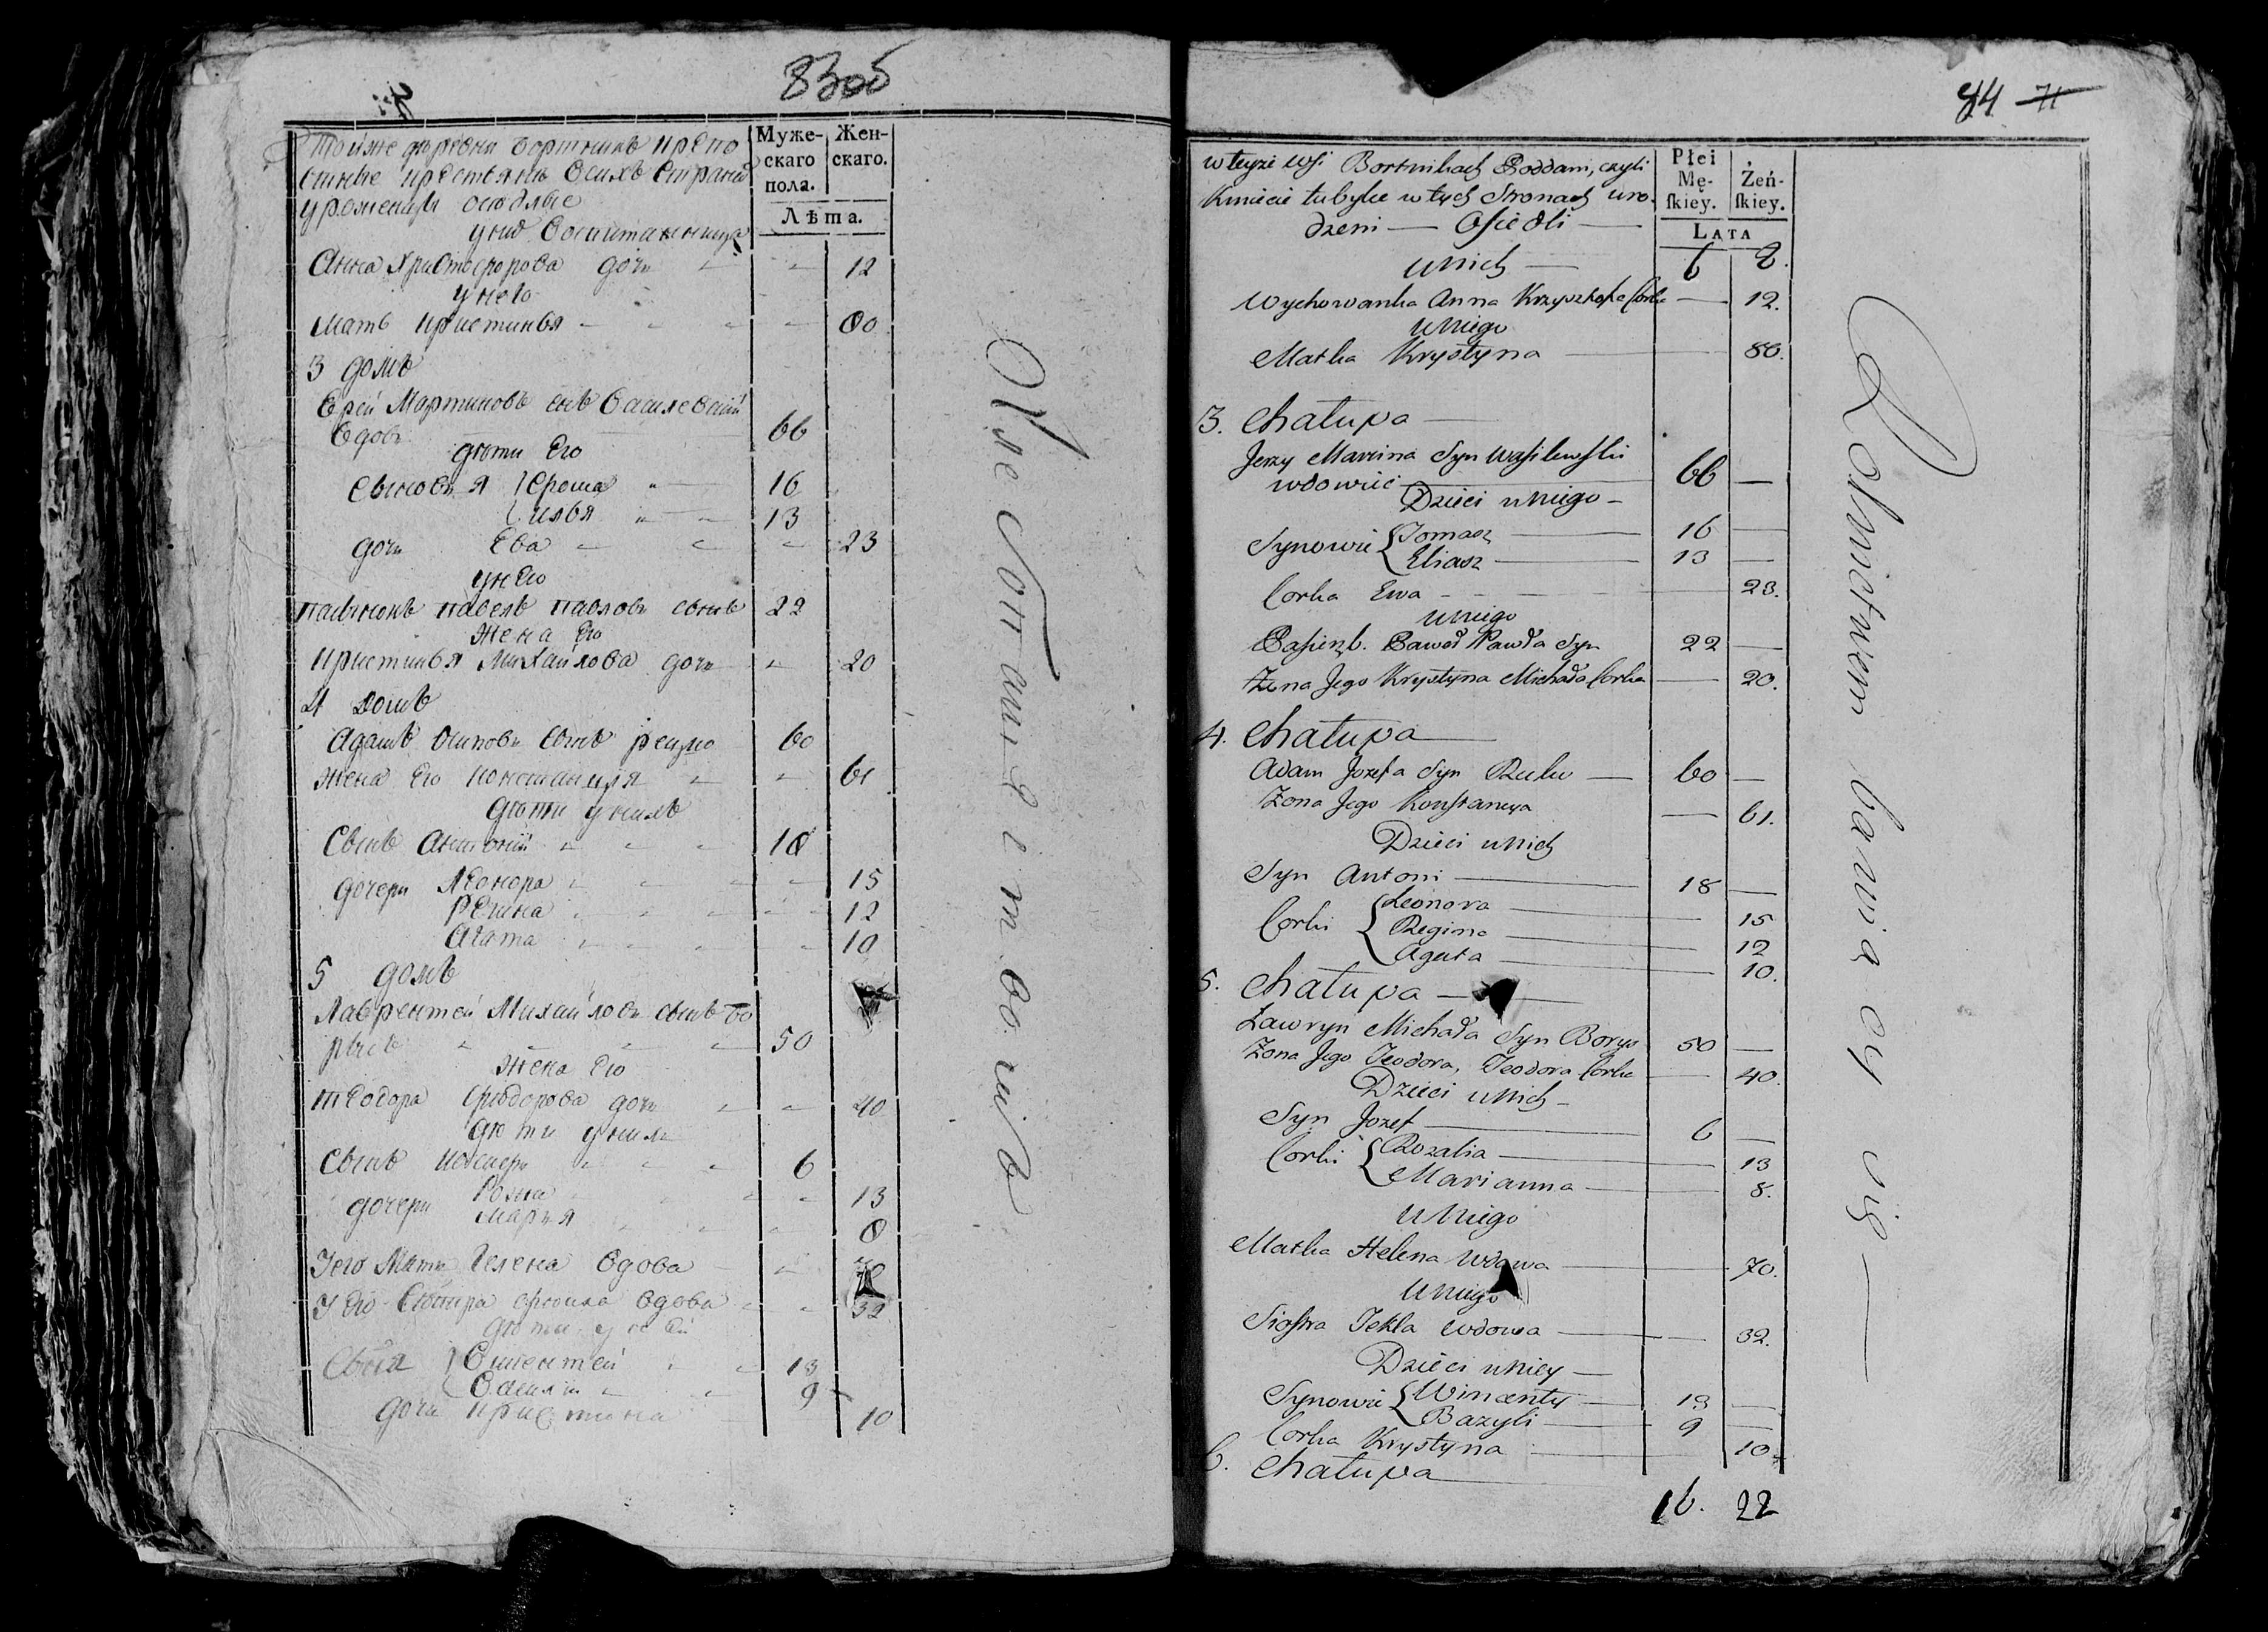 83об
Тойже деревни Бортникъ крепо
стные крестьянъ Осихъ Странъ
уроженцы оседлые
Муже-
скаго
пола.
Жен-
скаго.
Лѣта.
уних Воспитанница
Анна Христофорова дочь 12
унего
Мать Кристинья 80
3 домъ
Ерей Мартиновъ сынъ Василевский
Вдовъ 66
дѣти Его
Сыновья Ерома 16
Илья 13
дочь Ева 23
унего
пасынокъ павелъ павловъ сынъ 22
жена Его
Кристинья Михайлова дочь 20
4 домъ
Адамъ Осиповъ сынъ 60
жена Его Констанция 61
дѣти унихъ
Сынъ Антоний 18
дочери Леонора 15
Регина 12
Агата 10
5 домъ
Лаврентей Михайловъ сынъ Бо
рысъ 50
жена Его
теодора Фѣодорова дочь 40
дѣти унихъ
Сынъ 6
дочери Розиа 13
Мария 8
Его Мать Гелена вдова 70
У Его Сѣстра вдова 32
дѣти у ней
Сыня Викентей 13
Василий 9
дочь Кристина 10
Ничего
84. 71
w teyże Wsi Bortnikach Poddani, czyli
Kmiecie tubylce w tych Stronach uro-
dzeni — Osiedli —
Płci
Mę-
ſkiey.
Żeń-
ſkiey.
Lata
u Nich — 6 8.
Wychowanka Anna Krzysztofa Corka — 12.
u Niego
Matka Krystyna — 80.
3. Chałupa —
Jerzy Marcina Syn Wasilewski
wdowiec 66 —
Dzieci u Niego —
Synowie { Tomasz — 16 —
Eliasz — 13 —
Corka Ewa — 23.
u Niego
Pasierzb. Paweł Pawła Syn 22 —
Żona Jego Krystyna Michała Corka — 20.
4. Chałupa —
Adam Jozefa Syn — 60 —
Żona Jego Konstancya — 61.
Dzieci u Nich
Syn Antoni — 18 —
Corki { Leonora — 15
Regina — 12
Agata — 10.
5. Chałupa —
Ławryn Michała Syn Borys 50 —
Żona Jego Teodora, Teodora Corka — 40.
Dzieci u Nich —
Syn Jozef — 6 —
Corki { Rozalia — 13
Marianna — 8.
u Niego
Matka Helena Wdowa — 70.
u Niego
Siostra Tekla wdowa — 32.
Dzieci u Niey —
Synowie { Wincenty — 13 —
Bazyli — 9 —
Corka Krystyna — 10.
6. Chałupa —
16. 22
Rolnictwem bawiący się —